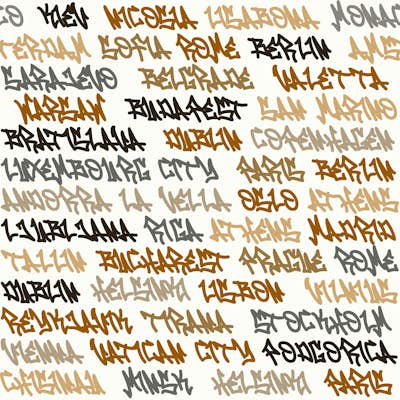 CO KIEV NICOSIA LISABONA MONAC
TERDAM SOFIA ROME BERLIN AMS
SARAJEVO BELGRADE VALETTA
WARSAW BUDAREST SAN MARINO
BRATISLAVA DUBLIN COPENHAGEN
LUXEMBOURG CITY PARIS BERLIN
ANDORRA LA VELLA OSLO ATHENS
LJUBLJANA RIGA ATHENS MADRID
TALLIN BUCHAREST PRAGUE ROME
DUBLIN HELSINKI LISBON VILNIUS
REYKJAVIK TIRANA STOCKHOLM
VIENNA VATICAN CITY PODGORICA
CHISINAU MINSK HELSINKI PARIS